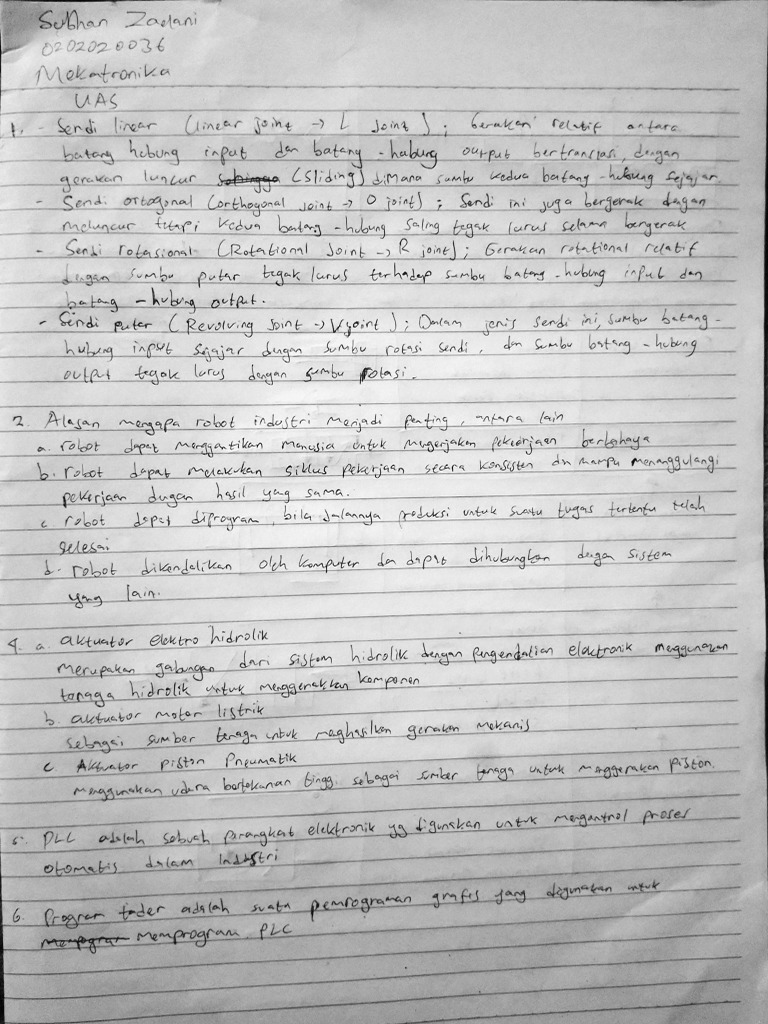 Subhan Zaelani
0202020036
Mekatronika
UAS
1. - Sendi linear (linear joint → L joint) ; Gerakan relatif antara
batang hubung input dan batang-hubung output bertranslasi, dengan
gerakan luncur (sliding) dimana sumbu kedua batang-hubung sejajar.
- Sendi ortogonal (orthogonal joint → O joint) ; Sendi ini juga bergerak dengan
meluncur tetapi kedua batang-hubung saling tegak lurus selama bergerak
- Sendi rotasional (Rotational Joint → R joint) ; Gerakan rotational relatif
dengan sumbu putar tegak lurus terhadap sumbu batang-hubung input dan
batang-hubung output.
- Sendi putar (Revolving Joint → V joint) ; Dalam jenis sendi ini, sumbu batang-
hubung input sejajar dengan sumbu rotasi sendi, dan sumbu batang-hubung
output tegak lurus dengan sumbu rotasi.
2. Alasan mengapa robot industri menjadi penting, antara lain
a. robot dapat menggantikan manusia untuk mengerjakan pekerjaan berbahaya
b. robot dapat melakukan siklus pekerjaan secara konsisten dn mampu menanggulangi
pekerjaan dengan hasil yang sama.
c robot dapat diprogram, bila jalannya produksi untuk suatu tugas tertentu telah
selesai
d. robot dikendalikan oleh komputer dan dapat dihubungkan dengan sistem
yang lain.
4. a. aktuator elektro hidrolik
merupakan gabungan dari sistem hidrolik dengan pengendalian elektronik menggunakan
tenaga hidrolik untuk menggerakkan komponen
b. aktuator motor listrik
sebagai sumber tenaga untuk maghasilkan gerakan mekanis
c. Aktuator piston Pneumatik
menggunakan udara bertekanan tinggi sebagai sumber tenaga untuk menggerakan piston.
5. PLC adalah sebuah perangkat elektronik yg digunakan untuk mengontrol proses
otomatis dalam industri
6. Program lader adalah suatu pemrograman grafis yang digunakan untuk
memprogram PLC